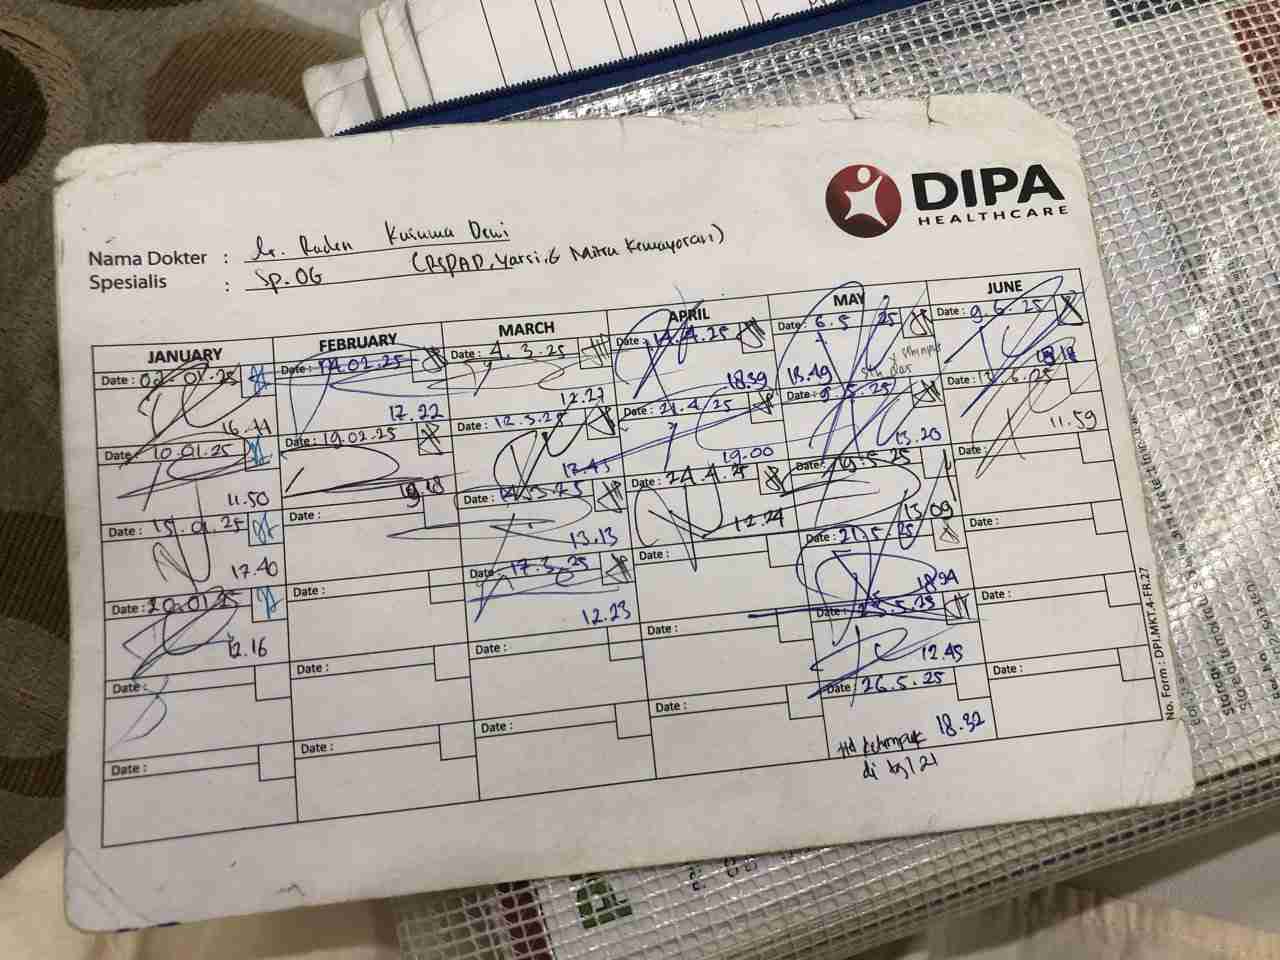 DIPA
HEALTHCARE
Nama Dokter : dr. Raden Kusuma Dewi
Spesialis : Sp.OG (RSPAD, Yarsi, & Mitra Kemayoran)
JANUARY
Date : 02.01.25
16.44
Date : 10.01.25
11.50
Date : 15.01.25
17.40
Date : 20.01.25
12.16
Date :
Date :
FEBRUARY
Date : 14.02.25
17.22
Date : 19.02.25
18
Date :
Date :
Date :
Date :
MARCH
Date : 4.3.25
12.27
Date : 12.3.25
17.45
Date : 14.3.25
13.13
Date : 17.3.25
12.23
Date :
Date :
APRIL
Date : 14.4.25
18.39
Date : 21.4.25
19.00
Date : 24.4.25
12.24
Date :
Date :
Date :
MAY
Date : 6.5.25
13.49
Date : 9.5.25
13.20
Date : 19.5.25
13.09
Date : 21.5.25
18.34
Date : 5.25
12.45
Date : 26.5.25
18.32
ttd
di tgl 21
JUNE
Date : 9.6.25
18.18
Date : 6.25
11.59
Date :
Date :
Date :
Date :
No. Form : DPI.MKT.4-FR.27